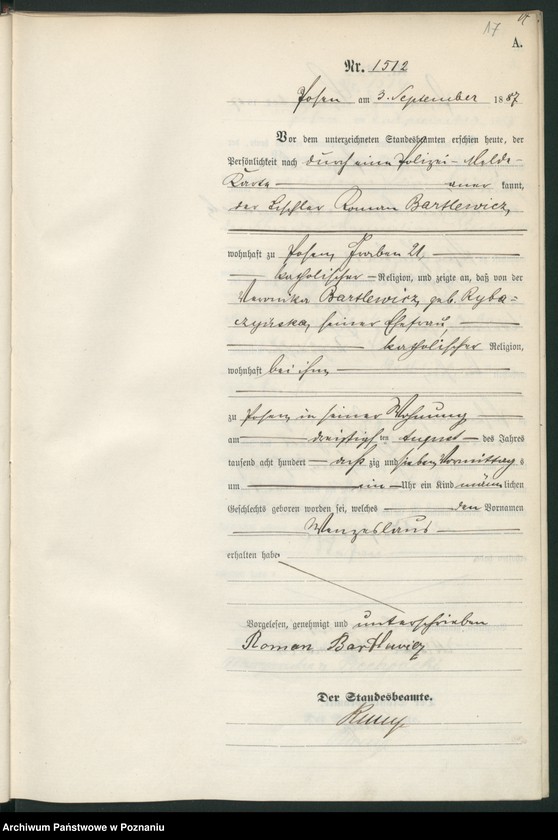 17
A.
Nr. 1512
Posen am 3. September 1887
Vor dem unterzeichneten Standesbeamten erschien heute, der
Persönlichkeit nach durch eine Polizei-Melde-
Karte aner kannt,
der Tischler Roman Bartlewicz,
wohnhaft zu Posen, Graben 21,
katholischer Religion, und zeigte an, daß von der
Veronika Bartlewicz, geb. Ryba-
czyńska, seiner Ehefrau,
katholischer Religion,
wohnhaft bei ihm
zu Posen, in seiner Wohnung
am dreißigsten August des Jahres
tausend acht hundert achtzig und sieben Vormittags
um ein Uhr ein Kind männlichen
Geschlechts geboren worden sei, welches den Vornamen
Wenzeslaus
erhalten habe
Vorgelesen, genehmigt und unterschrieben
Roman Bartlewicz
Der Standesbeamte.
Archiwum Państwowe w Poznaniu